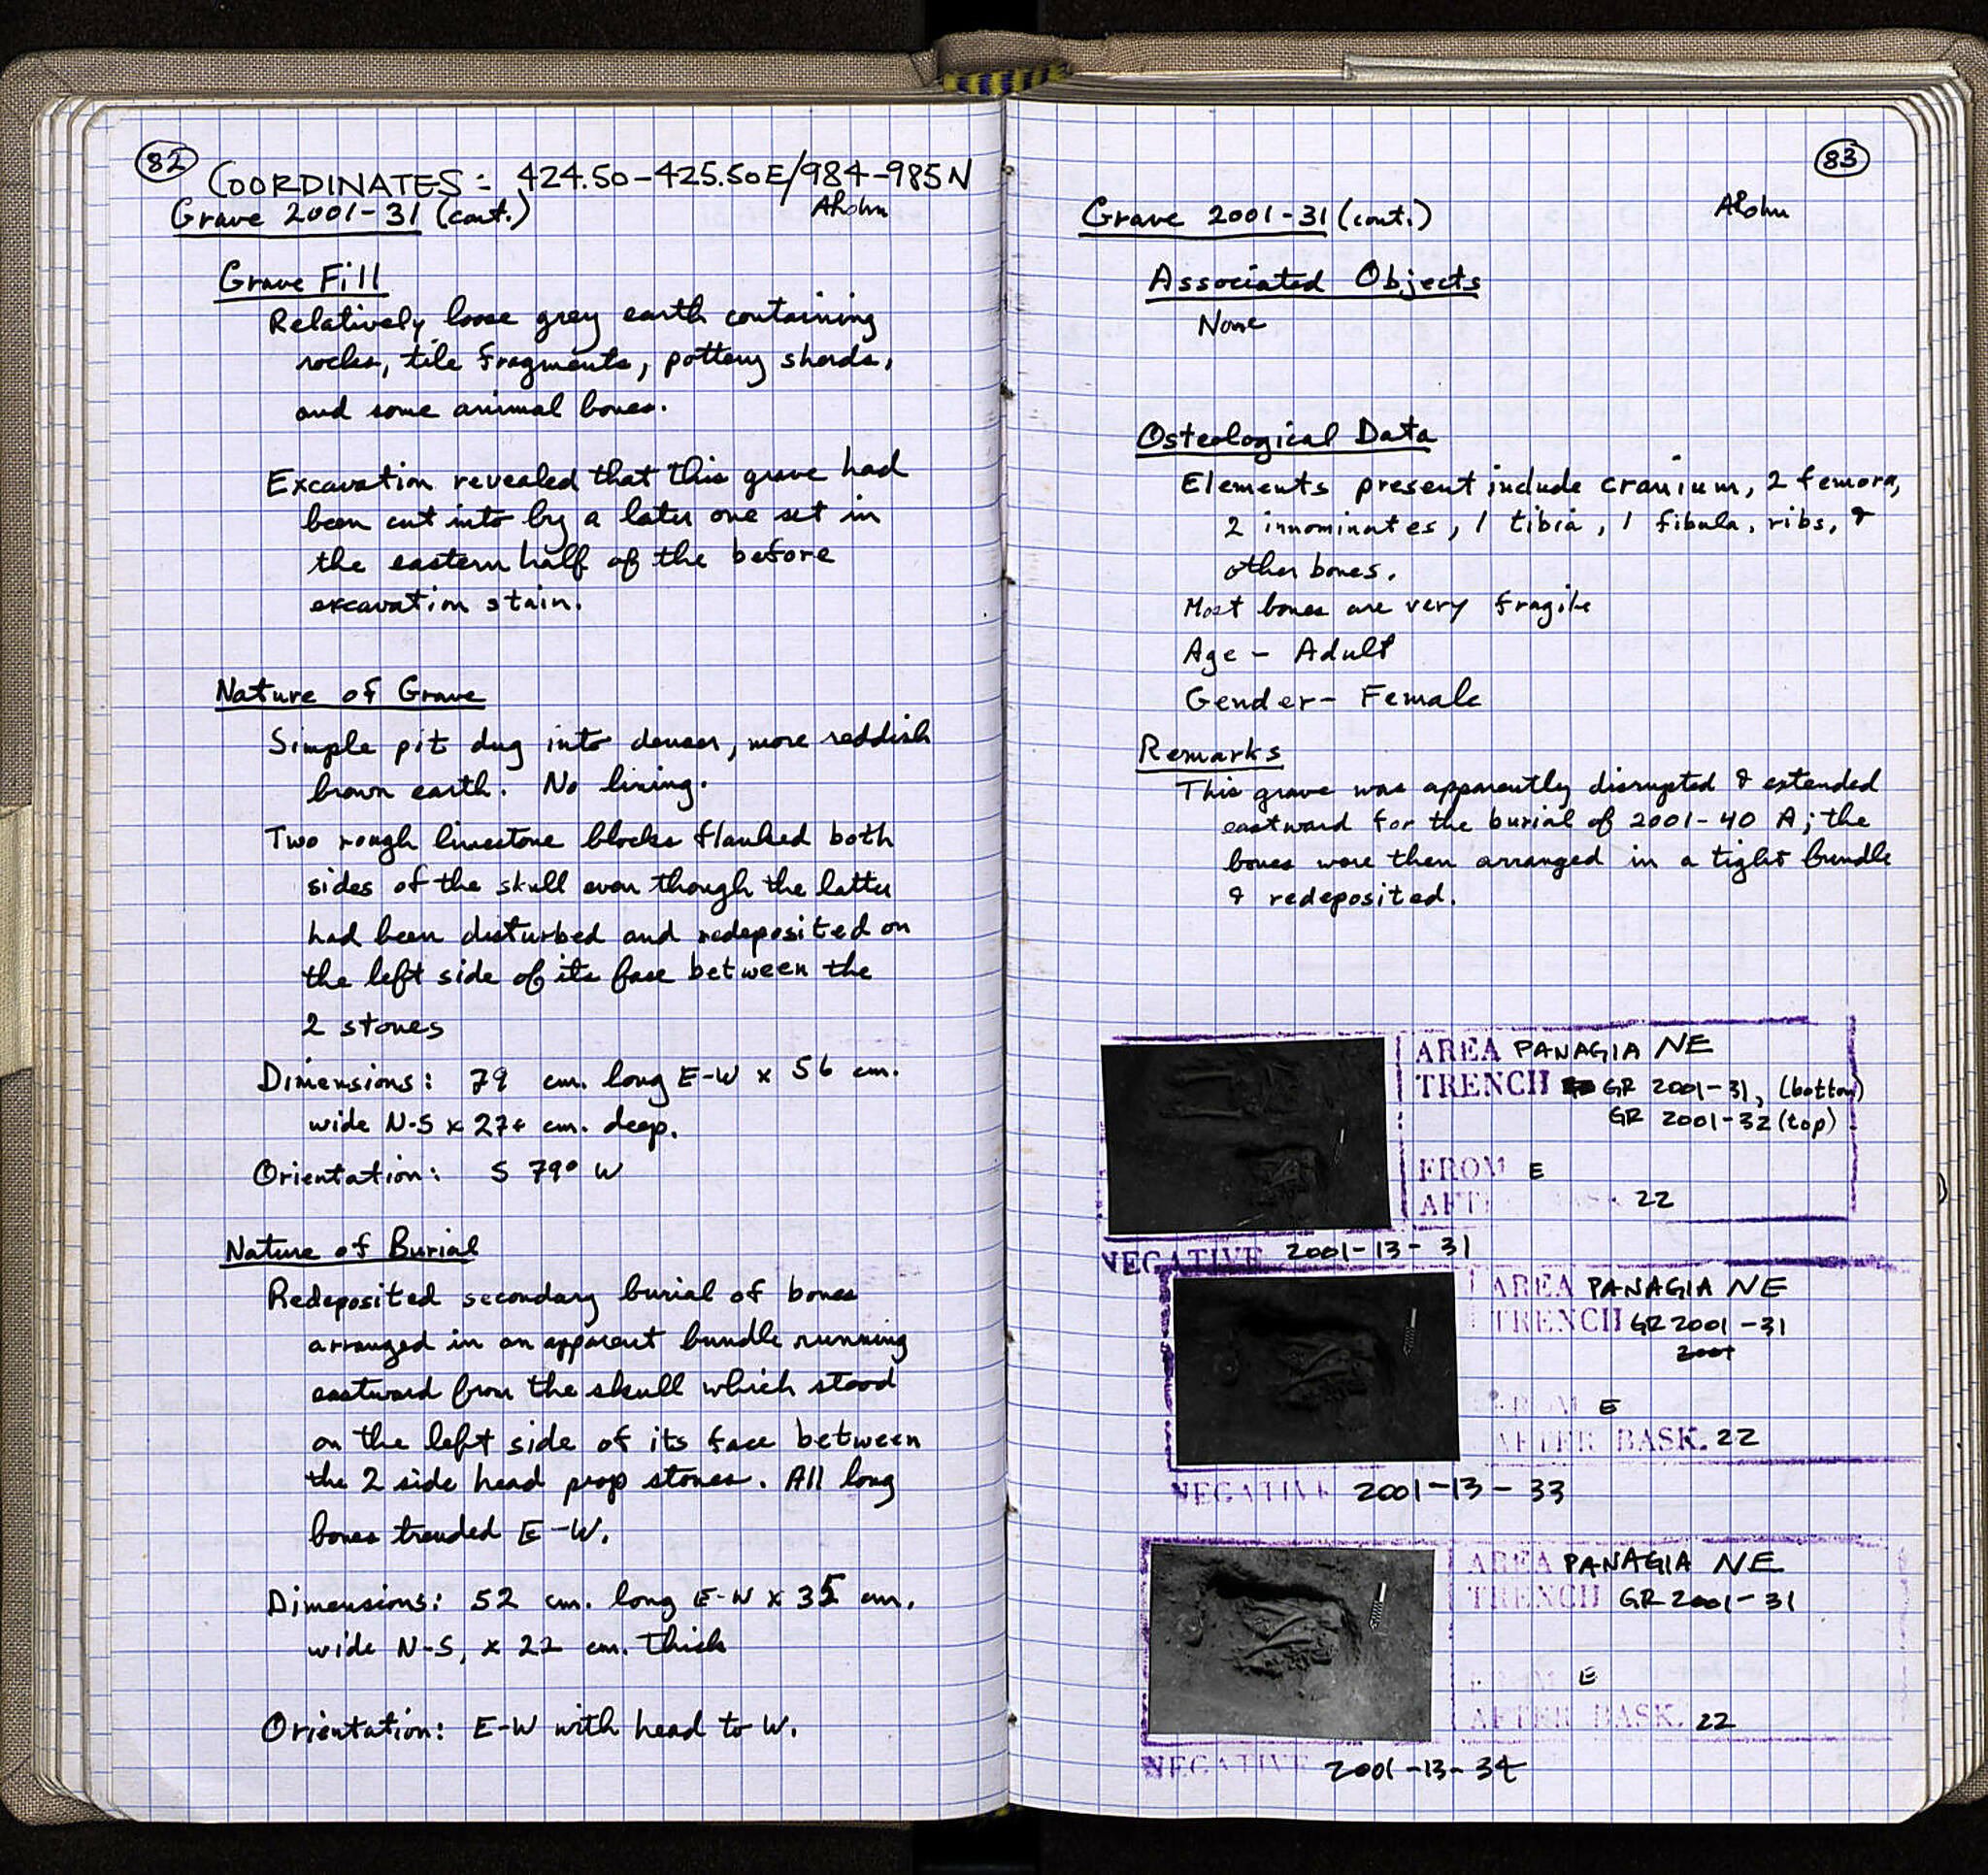 82
COORDINATES: 424.50-425.50E/984-985N
Grave 2001-31 (cont.) ARohn
Grave Fill
Relatively loose grey earth containing
rocks, tile fragments, pottery sherds,
and some animal bones.
Excavation revealed that this grave had
been cut into by a later one set in
the eastern half of the before
excavation stain.
Nature of Grave
Simple pit dug into denser, more reddish
brown earth. No lining.
Two rough limestone blocks flanked both
sides of the skull even though the latter
had been disturbed and redeposited on
the left side of its face between the
2 stones
Dimensions: 79 cm. long E-W x 56 cm.
wide N-S x 27+ cm. deep.
Orientation: S 79° W
Nature of Burial
Redeposited secondary burial of bones
arranged in an apparent bundle running
eastward from the skull which stood
on the left side of its face between
the 2 side head prop stones. All long
bones trended E-W.
Dimensions: 52 cm. long E-W x 35 cm.
wide N-S, x 22 cm. thick
Orientation: E-W with head to W.
83
Grave 2001-31 (cont.) ARohn
Associated Objects
None
Osteological Data
Elements present include cranium, 2 femora,
2 innominates, 1 tibia, 1 fibula, ribs, &
other bones.
Most bones are very fragile
Age - Adult
Gender - Female
Remarks
This grave was apparently disrupted & extended
eastward for the burial of 2001-40 A; the
bones were then arranged in a tight bundle
& redeposited.
AREA PANAGIA NE
TRENCH GR 2001-31, (bottom)
GR 2001-32 (top)
FROM E
AFT BASK 22
NEGATIVE 2001-13-31
AREA PANAGIA NE
TRENCH GR 2001-31
2001
FROM E
AFTER BASK. 22
NEGATIVE 2001-13-33
AREA PANAGIA NE
TRENCH GR 2001-31
FROM E
AFTER BASK. 22
NEGATIVE 2001-13-34